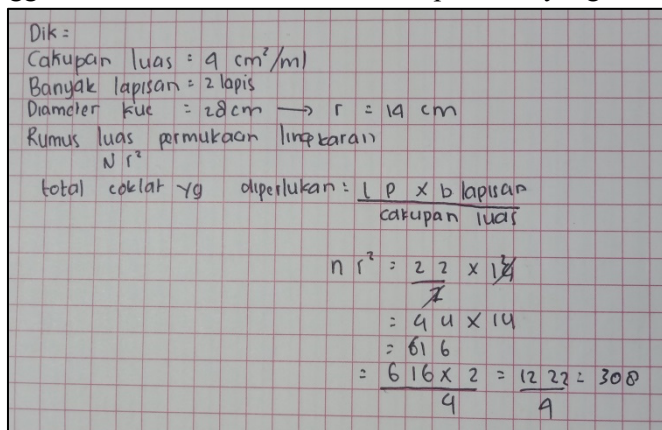 Dik =
Cakupan luas = 4 cm²/ml
Banyak lapisan = 2 lapis
Diameter kue = 28 cm → r = 14 cm
Rumus luas permukaan lingkaran
π r²
total coklat yg diperlukan = l p x b lapisan
cakupan luas
π r² = 22 x 14 2
7
= 44 x 14
= 616
= 616 x 2 = 1222 = 308
4 4